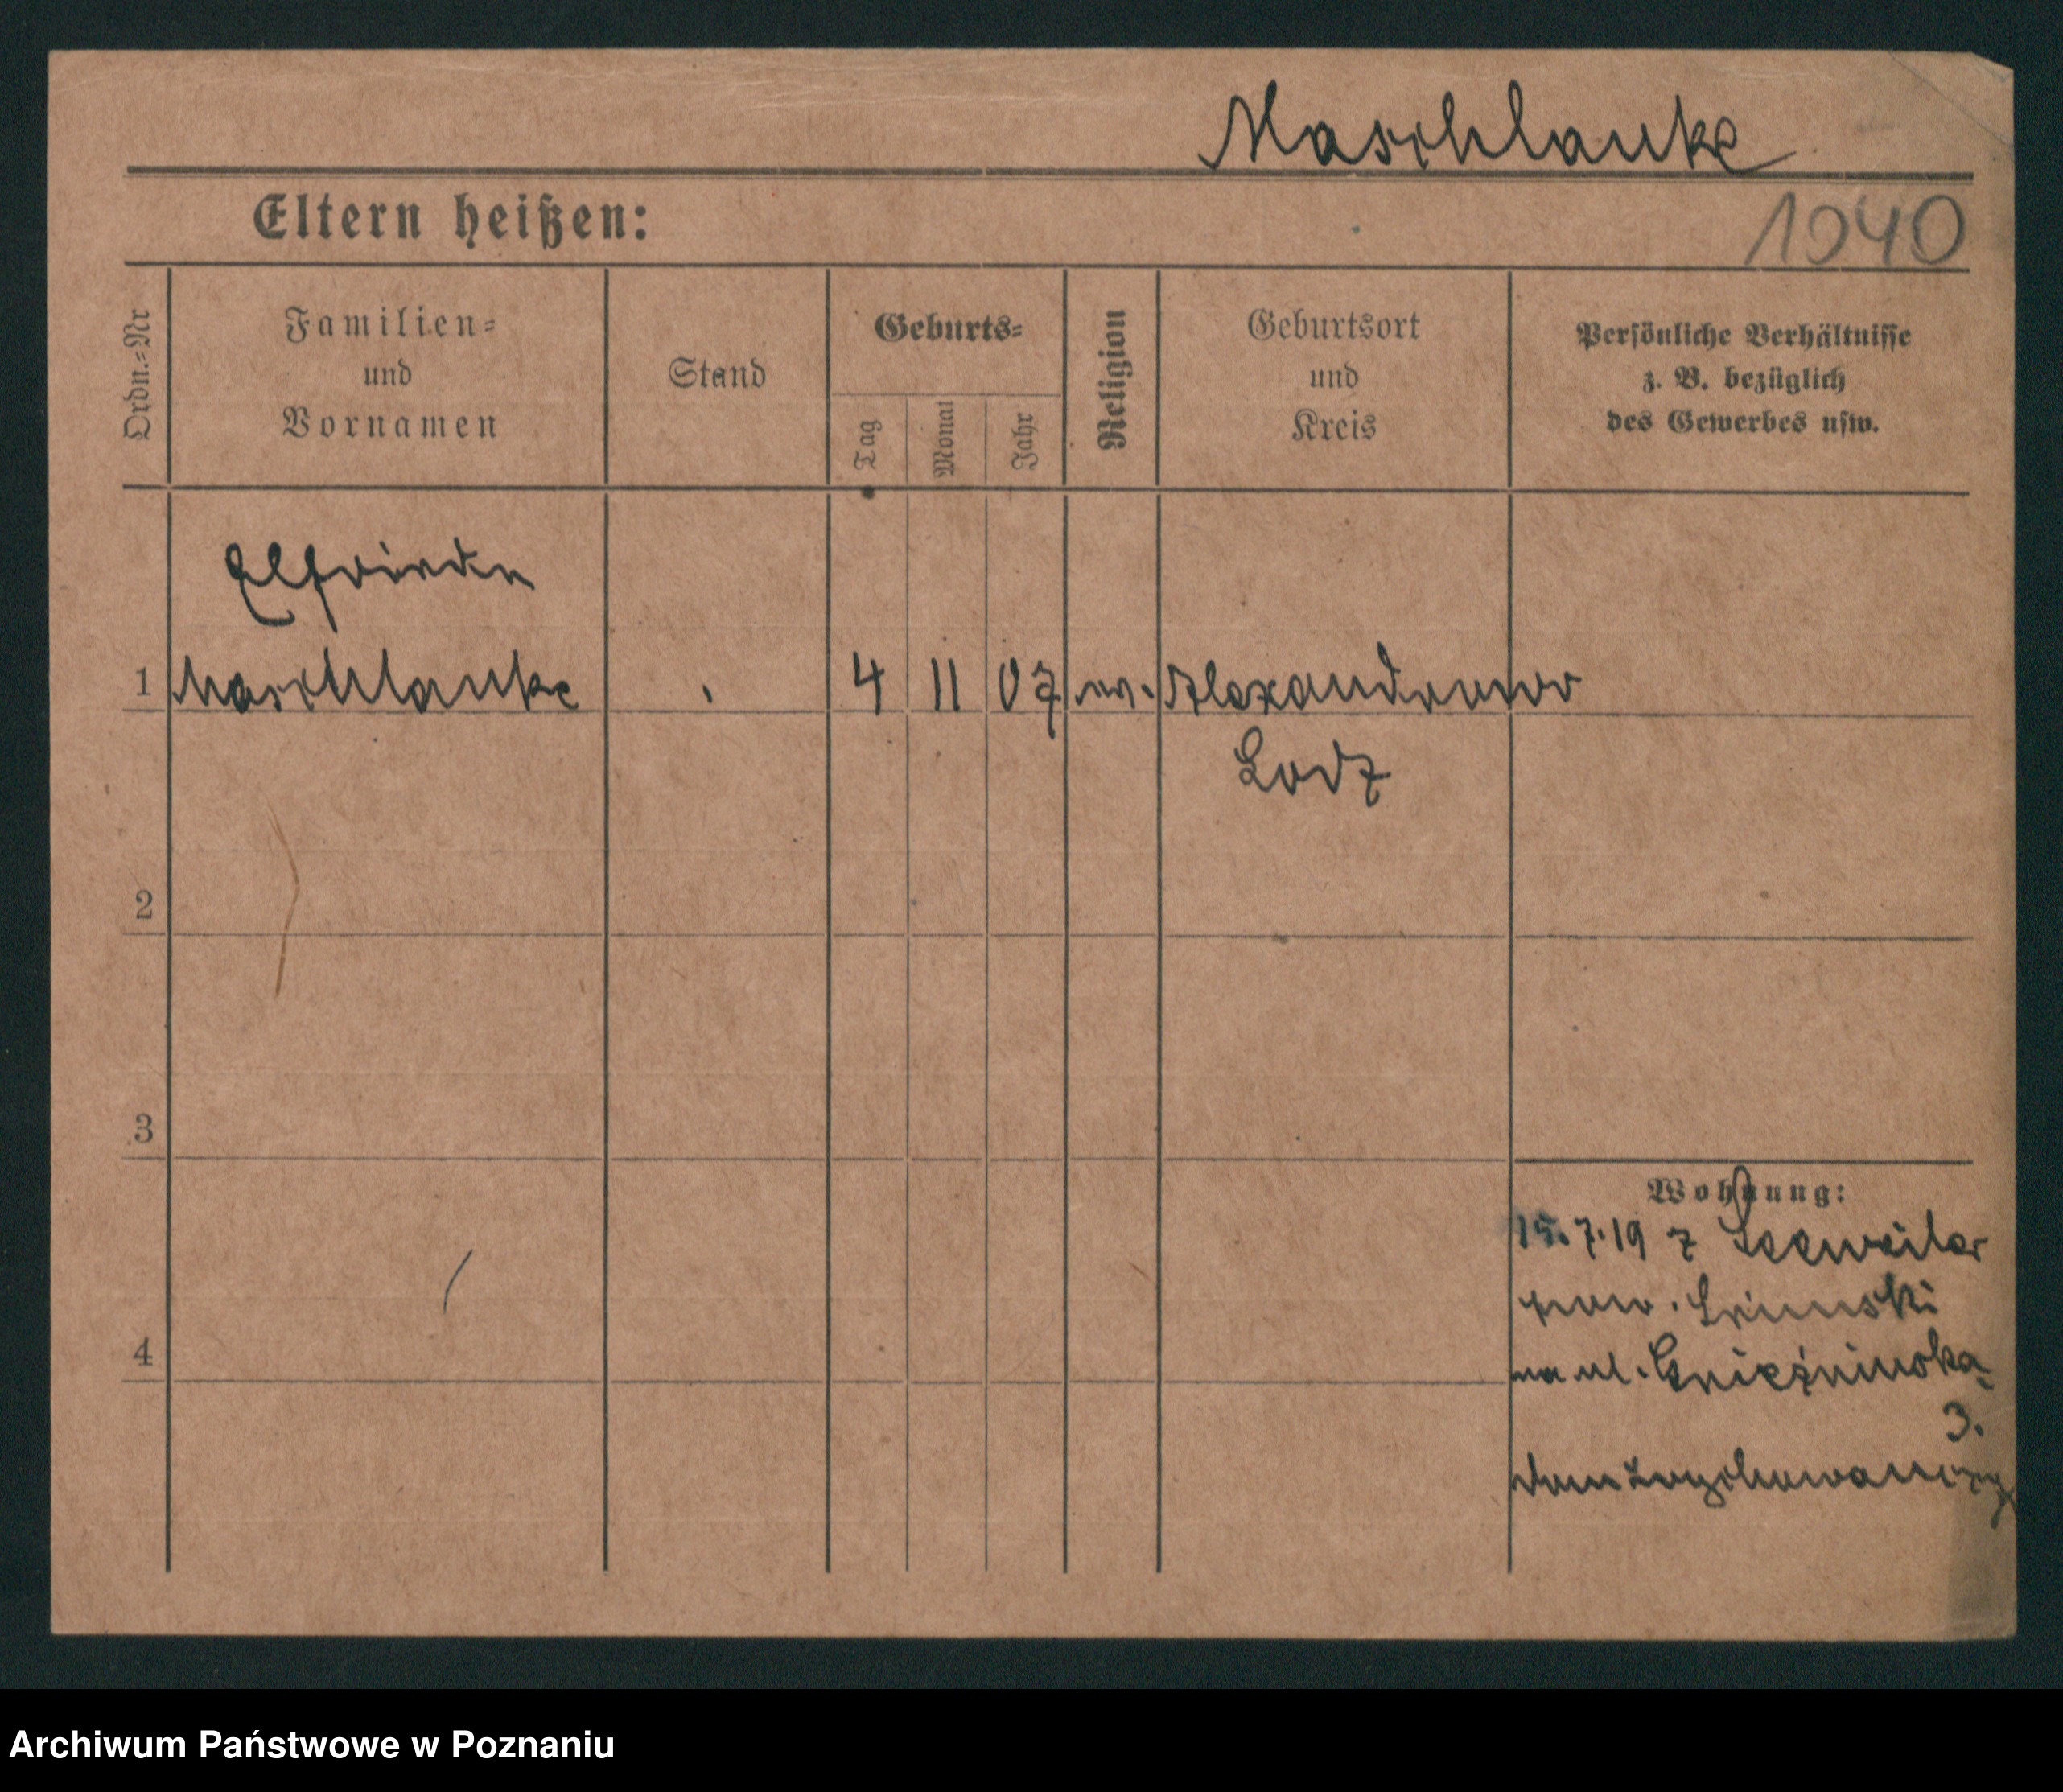 Maschlanke
Eltern heißen:
1940
Ordn.=Nr
Familien=
und
Vornamen
Stand
Geburts=
Tag
Monat
Jahr
Religion
Geburtsort
und
Kreis
Persönliche Verhältnisse
z. B. bezüglich
des Gewerbes usw.
Elfriede
1 Maschlanke 4 11 07 ev. Alexandrowo
Lodz
2
3
Wohnung:
15.7.19 z Seeweiler
pow.
na ul. Gnieźnińska
3.
4
dom
Archiwum Państwowe w Poznaniu